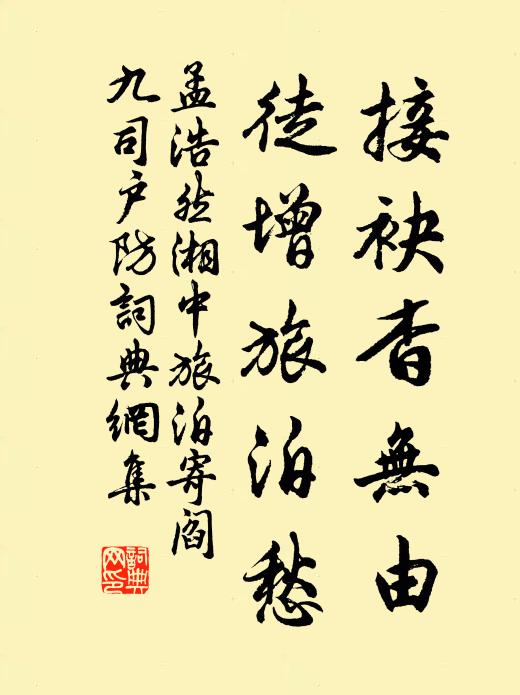 接袂杳無由
徒增旅泊愁
孟浩然湘中旅泊寄閻
九司戶防詞典網集
詞典网印